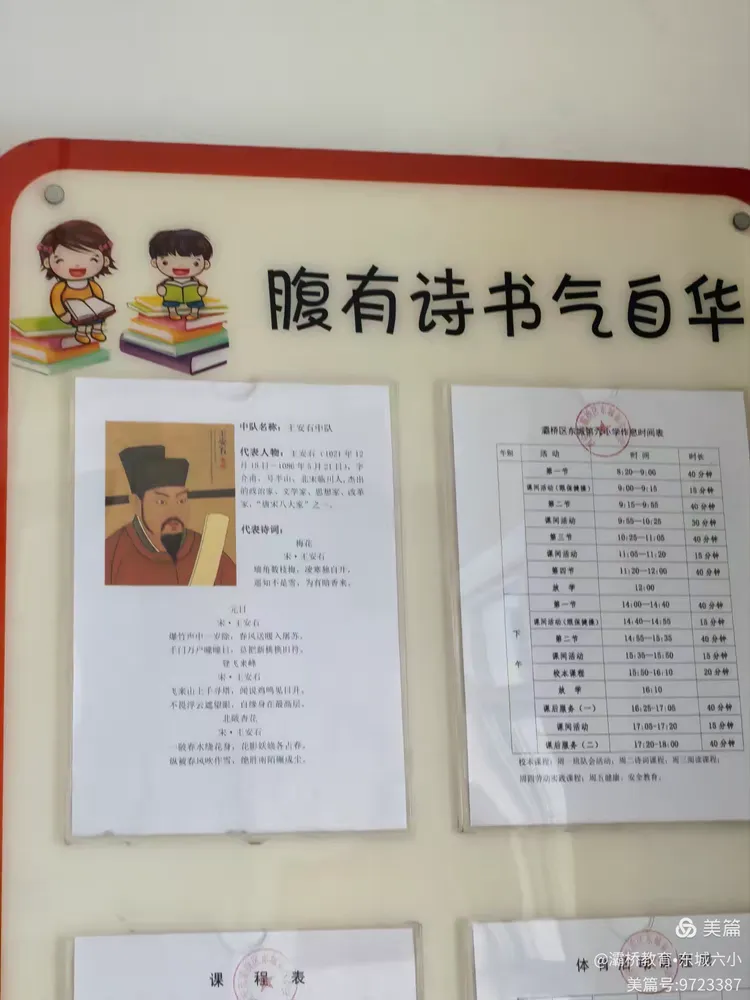 腹有诗书气自华
王安石
中队名称：王安石中队
代表人物：王安石（1021年12
月18日－1086年5月21日），字
介甫，号半山，北宋临川人，杰出
的政治家、文学家、思想家、改革
家，“唐宋八大家”之一。
代表诗词：
梅花
宋·王安石
墙角数枝梅，凌寒独自开。
遥知不是雪，为有暗香来。
元日
宋·王安石
爆竹声中一岁除，春风送暖入屠苏。
千门万户曈曈日，总把新桃换旧符。
登飞来峰
宋·王安石
飞来山上千寻塔，闻说鸡鸣见日升。
不畏浮云遮望眼，自缘身在最高层。
北陂杏花
宋·王安石
一陂春水绕花身，花影妖娆各占春。
纵被春风吹作雪，绝胜南陌碾成尘。
灞桥区东城第六小学作息时间表
午别 活动 时间 时长
第一节 8:20—9:00 40分钟
课间活动（眼保健操） 9:00—9:15 15分钟
第二节 9:15—9:55 40分钟
课间活动 9:55—10:25 30分钟
第三节 10:25—11:05 40分钟
课间活动 11:05—11:20 15分钟
第四节 11:20—12:00 40分钟
放学 12:00
下午
第一节 14:00—14:40 40分钟
课间活动（眼保健操） 14:40—14:55 15分钟
第二节 14:55—15:35 40分钟
课间活动 15:35—15:50 15分钟
校本课程 15:50-16:10 20分钟
放学 16:10
课后服务（一） 16:25-17:05 40分钟
课间活动 17:05-17:20 15分钟
课后服务（二） 17:20-18:00 40分钟
校本课程：周一班队会活动；周二诗词课程；周三阅读课程；
周四劳动实践课程；周五健康、安全教育。
课程表
体育活动
美篇
@灞桥教育•东城六小
美篇号:9723387